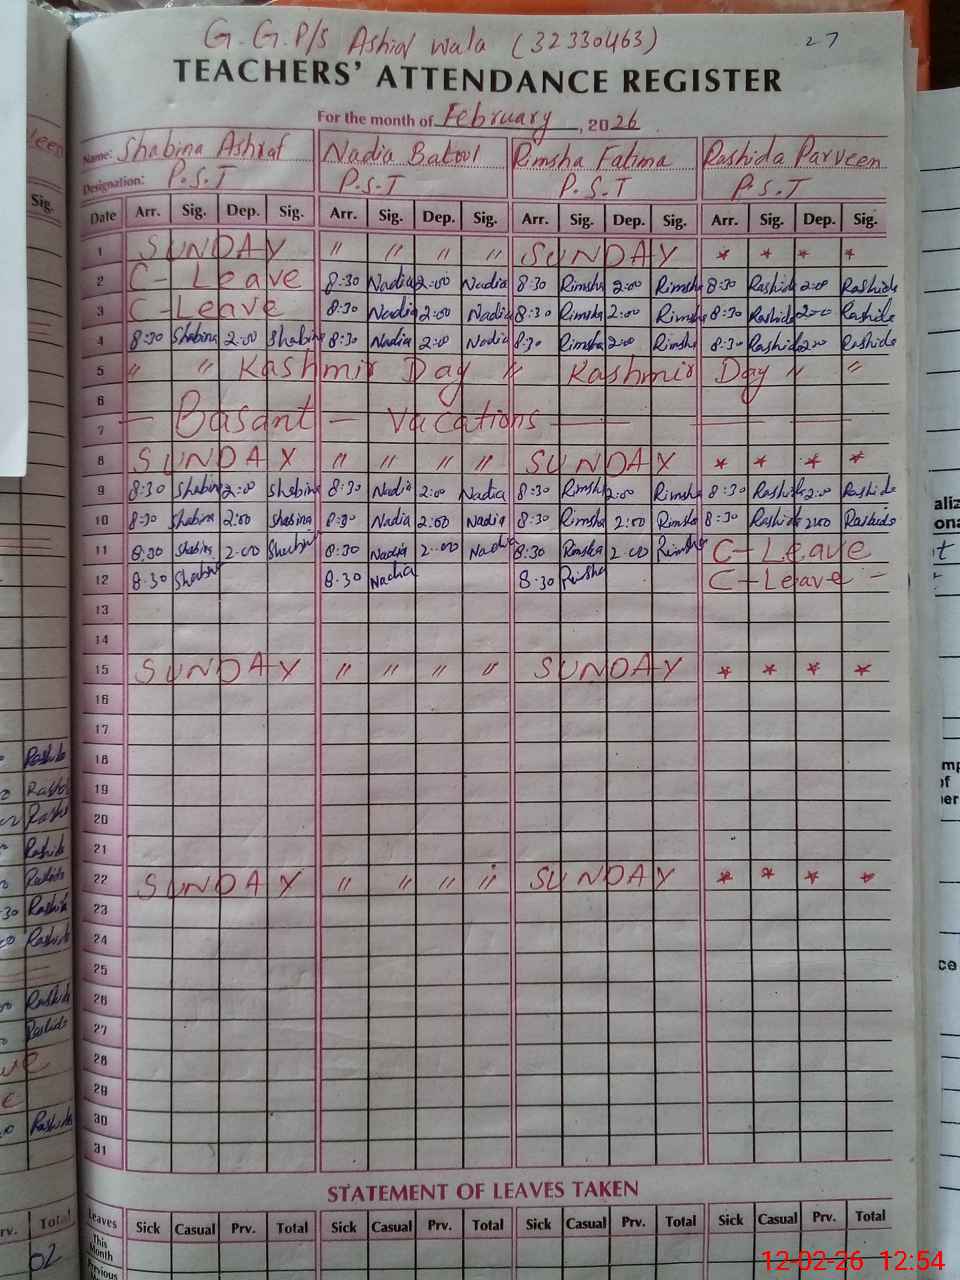 G.G.P/S Ashraf wala (32330463) 27
TEACHERS' ATTENDANCE REGISTER
For the month of February, 2026
Name: Shabina Ashraf Nadia Batool Rimsha Fatima Rashida Parveen
Designation: P.S.T P.S.T P.S.T P.S.T
Date Arr. Sig. Dep. Sig. Arr. Sig. Dep. Sig. Arr. Sig. Dep. Sig. Arr. Sig. Dep. Sig.
1 SUNDAY " " " " SUNDAY * * * *
2 C-Leave 8:30 Nadia 2:00 Nadia 8:30 Rimsha 2:00 Rimsha 8:30 Rashida 2:00 Rashida
3 C-Leave 8:30 Nadia 2:00 Nadia 8:30 Rimsha 2:00 Rimsha 8:30 Rashida 2:00 Rashida
4 8:30 Shabina 2:00 Shabina 8:30 Nadia 2:00 Nadia 8:30 Rimsha 2:00 Rimsha 8:30 Rashida 2:00 Rashida
5 " " Kashmir Day " Kashmir Day " "
6
7 — Basant — Vacations — — — —
8 SUNDAY " " " " SUNDAY * * * *
9 8:30 Shabina 2:00 Shabina 8:30 Nadia 2:00 Nadia 8:30 Rimsha 2:00 Rimsha 8:30 Rashida 2:00 Rashida
10 8:30 Shabina 2:00 Shabina 8:30 Nadia 2:00 Nadia 8:30 Rimsha 2:00 Rimsha 8:30 Rashida 2:00 Rashida
11 8:30 Shabina 2:00 Shabina 8:30 Nadia 2:00 Nadia 8:30 Rimsha 2:00 Rimsha C-Leave
12 8:30 Shabina 8:30 Nadia 8:30 Rimsha C-Leave -
13
14
15 SUNDAY " " " " SUNDAY * * * *
16
17
18
19
20
21
22 SUNDAY " " " " SUNDAY * * * *
23
24
25
26
27
28
29
30
31
STATEMENT OF LEAVES TAKEN
Leaves Sick Casual Prv. Total Sick Casual Prv. Total Sick Casual Prv. Total Sick Casual Prv. Total
This Month
Previous
Sig.
Rashida
Rashida
Rashida
Rashida
Rashida
Rashida
Rashida
Rashida
Rashida
Rashida
Total
02
12-02-26 12:54